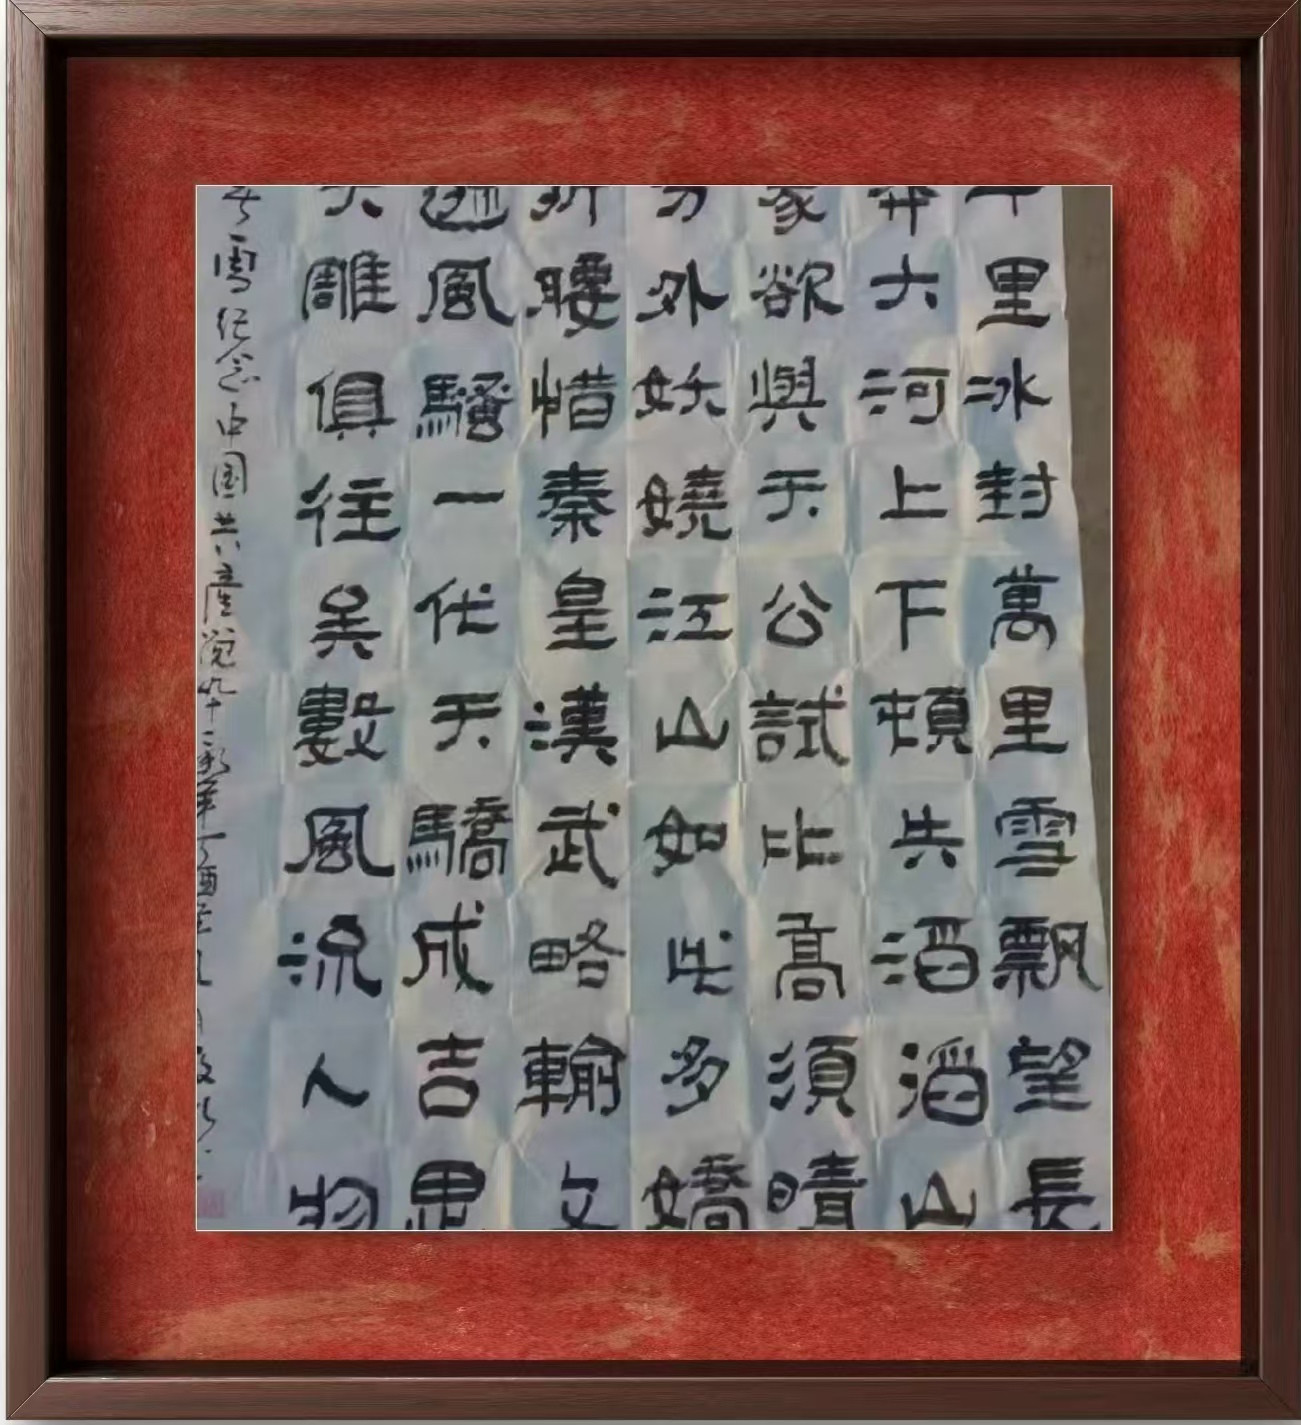 千里冰封萬里雪飄望長
莽大河上下頓失滔滔山
象欲與天公試比高須晴
分外妖嬈江山如此多嬌
折腰惜秦皇漢武略輸文
遜風騷一代天驕成吉思
大雕俱往矣數風流人物
雪纪念中国共產党九十